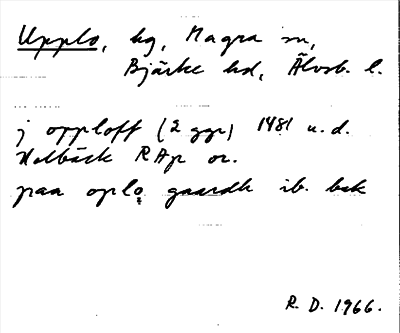 Upplo, hg, Magra sn,
Bjärke hd, Älvsb. l.
j opploff (2 ggr) 1481 u.d.
Holbäck RAp or.
paa oplo gaardh ib. bak
R. D. 1966.